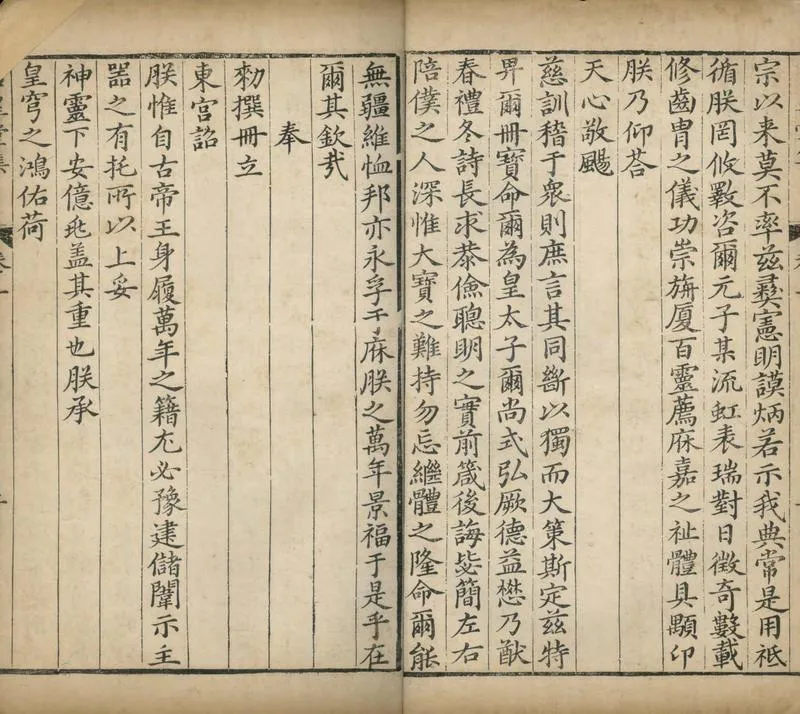 宗以来莫不率兹彞憲明謨炳若示我典常是用祗
循朕罔攸斁咨爾元子某流虹表瑞對日徵奇數載
修齒胄之儀功崇旃厦百靈薦庥嘉之祉體具顒卬
朕乃仰荅
天心敬颺
慈訓稽于衆則庶言其同斷以獨而大策斯定兹特
畀爾冊寶命爾為皇太子爾尚式弘厥德益懋乃猷
春禮冬詩長求恭儉聰明之實前箴後誨毖簡左右
陪僕之人深惟大寶之難持勿忘繼體之隆命爾能
無疆維恤邦亦永孚于庥朕之萬年景福于是乎在
爾其欽㢤
奉
勑撰冊立
東宮詔
朕惟自古帝王身履萬年之籍尤必豫建儲闈示主
噐之有托所以上妥
神靈下安億兆盖其重也朕承
皇穹之鴻佑荷